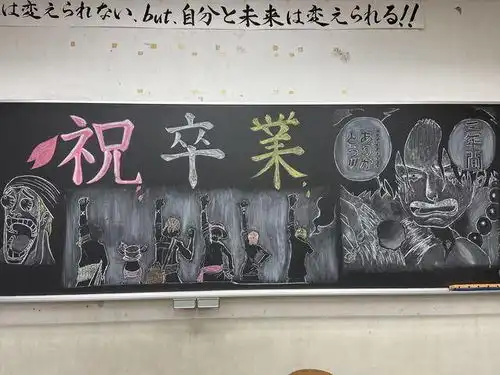 は変えられない、but、自分と未来は変えられる!!
祝卒業
三年間
ありがとう